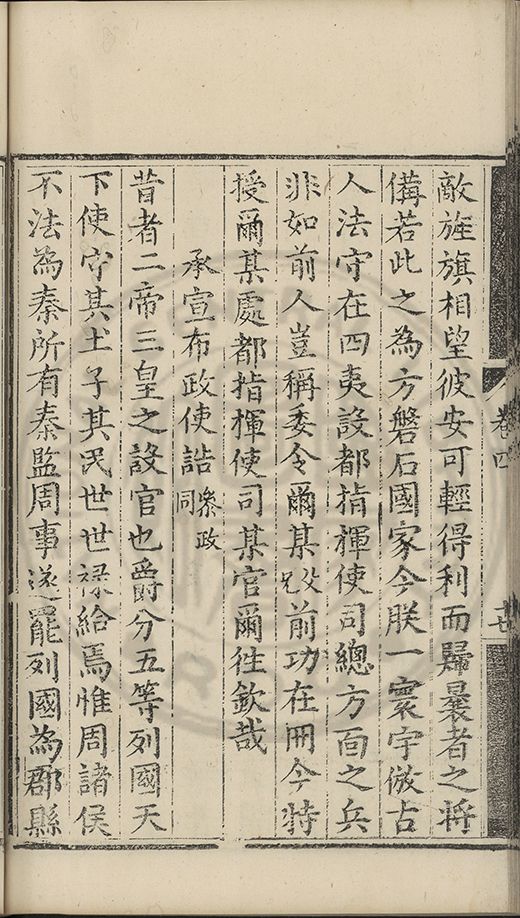 敵旌旗相望彼安可輕得利而歸曩者之將
備若此之為方磐石國家今朕一寰宇倣古
人法守在四夷設都指揮使司總方面之兵
非如前人豈稱委令爾某殁前功在冊今特
授爾某處都指揮使司某官爾徃欽哉
承宣布政使誥叅政同
昔者二帝三皇之設官也爵分五等列國天
下使守其土子其民世世祿給焉惟周諸侯
不法為秦所有秦監周事遂罷列國為郡縣
卷四